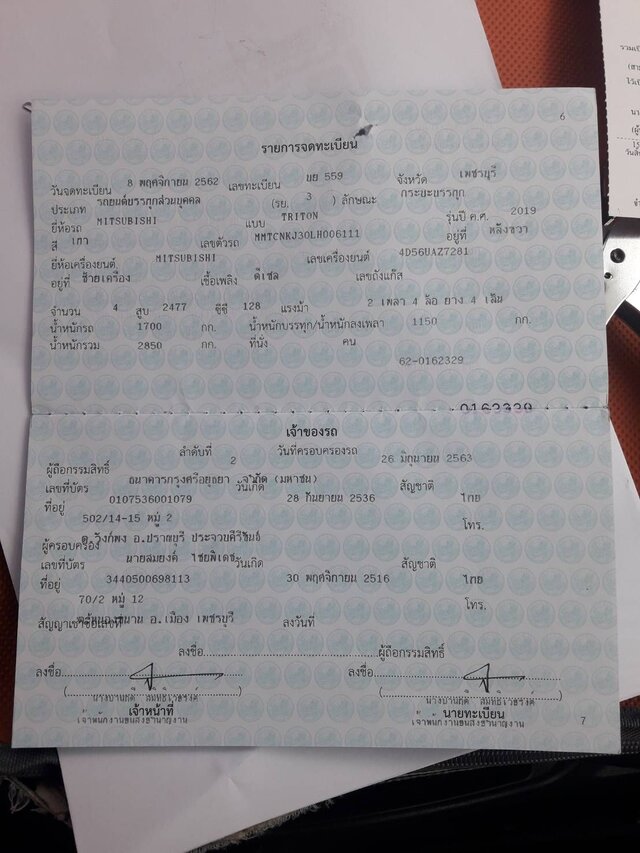 6
รายการจดทะเบียน
วันจดทะเบียน 8 พฤศจิกายน 2562 เลขทะเบียน บย 559 จังหวัด เพชรบุรี
ประเภท รถยนต์บรรทุกส่วนบุคคล (รย. 3 ) ลักษณะ กระบะบรรทุก
ยี่ห้อรถ MITSUBISHI แบบ TRITON รุ่นปี ค.ศ. 2019
สี เทา เลขตัวรถ MMTCNKJ30LH006111 อยู่ที่ หลังขวา
ยี่ห้อเครื่องยนต์ MITSUBISHI เลขเครื่องยนต์ 4D56UAZ7281
อยู่ที่ ซ้ายเครื่อง เชื้อเพลิง ดีเซล เลขถังแก๊ส
จำนวน 4 สูบ 2477 ซีซี 128 แรงม้า 2 เพลา 4 ล้อ ยาง 4 เส้น
น้ำหนักรถ 1700 กก. น้ำหนักบรรทุก/น้ำหนักลงเพลา 1150 กก.
น้ำหนักรวม 2850 กก. ที่นั่ง คน
62-0162329
0162329
เจ้าของรถ
ลำดับที่ 2 วันที่ครอบครองรถ 26 มิถุนายน 2563
ผู้ถือกรรมสิทธิ์ ธนาคารกรุงศรีอยุธยา จำกัด (มหาชน)
เลขที่บัตร 0107536001079 วันเกิด 28 กันยายน 2536 สัญชาติ ไทย
ที่อยู่ 502/14-15 หมู่ 2 โทร.
ต.วังก์พง อ.ปราณบุรี ประจวบคีรีขันธ์
ผู้ครอบครอง นายสมยงค์ ไชยพิเดช
เลขที่บัตร 3440500698113 วันเกิด 30 พฤศจิกายน 2516 สัญชาติ ไทย
ที่อยู่ 70/2 หมู่ 12 โทร.
อ.เมือง เพชรบุรี
สัญญาเช่าซื้อเลขที่ ลงวันที่
ลงชื่อ ผู้ถือกรรมสิทธิ์
ลงชื่อ ลงชื่อ
เจ้าหน้าที่ นายทะเบียน
เจ้าพนักงานขนส่งชำนาญงาน เจ้าพนักงานขนส่งชำนาญงาน
7